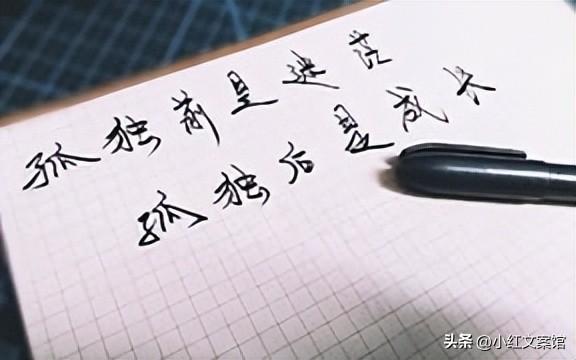 孤独前是迷茫
孤独后是成长
头条 @小红文案馆